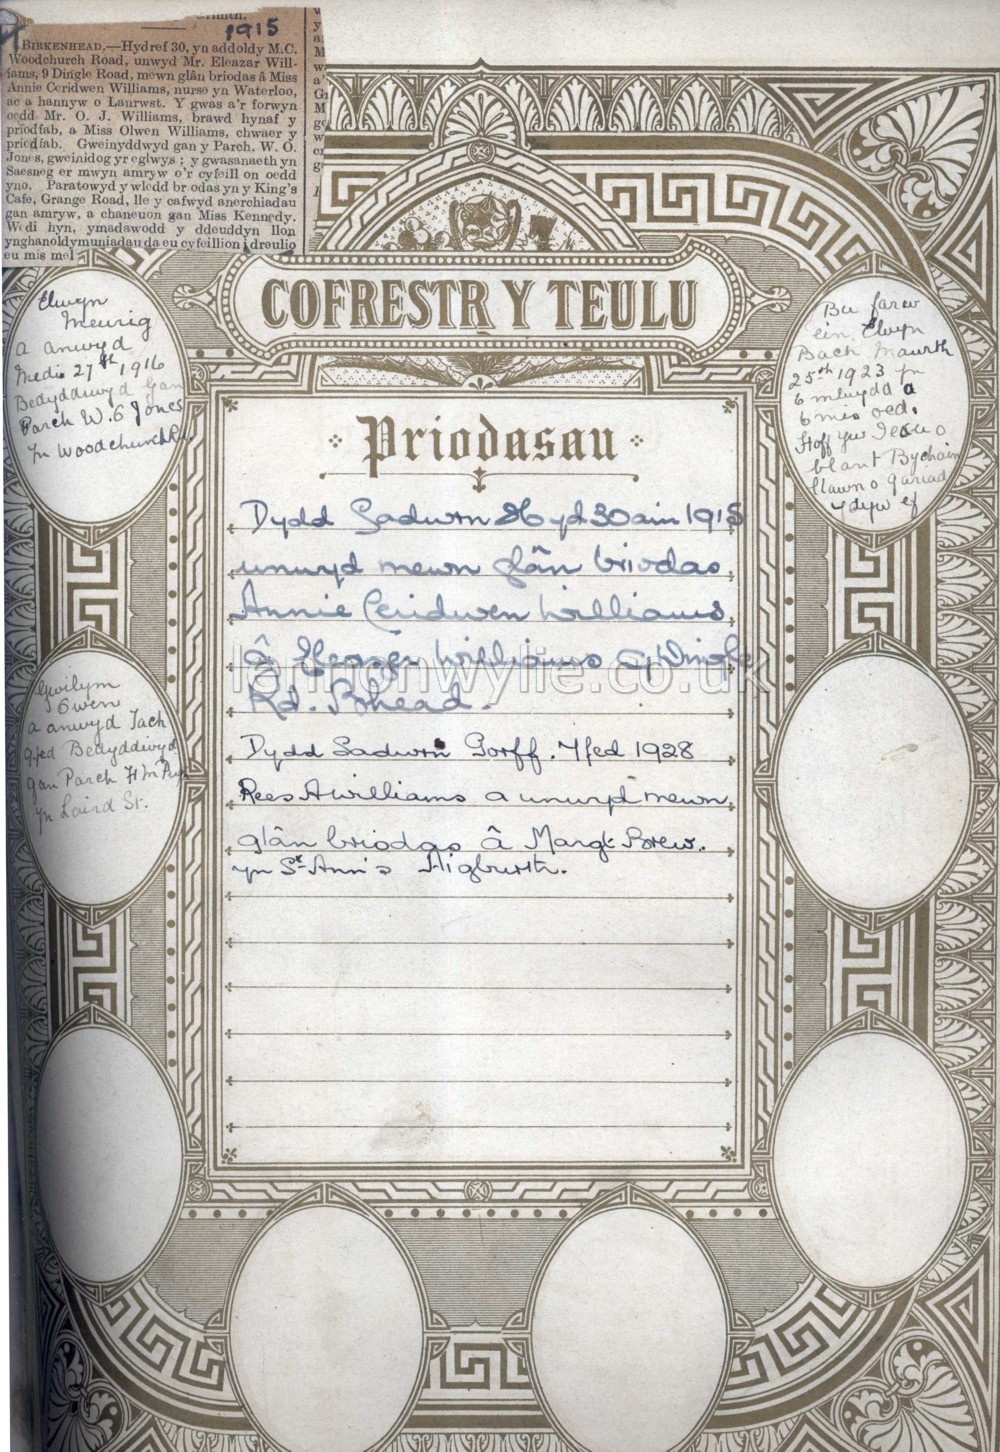 1915
BIRKENHEAD.—Hydref 30, yn addoldy M.C.
Woodchurch Road, unwyd Mr. Eleazar Will-
iams, 9 Dingle Road, mewn glân briodas â Miss
Annie Ceridwen Williams, nurse yn Waterloo,
ac a hannyw o Lanrwst. Y gwas a'r forwyn
oedd Mr. O. J. Williams, brawd hynaf y
priodfab, a Miss Olwen Williams, chwaer y
priodfab. Gweinyddwyd gan y Parch. W. O.
Jones, gweinidog yr eglwys; y gwasanaeth yn
Saesneg er mwyn amryw o'r cyfeillion oedd
yno. Paratowyd y wledd briodas yn y King's
Cafe, Grange Road, lle y cafwyd anerchiadau
gan amryw, a chaneuon gan Miss Kennedy.
Wedi hyn, ymadawodd y ddeuddyn llon
ynghanol dymuniadau da eu cyfeillion i dreulio
eu mis mel
COFRESTR Y TEULU
Elwyn
Meurig
a anwyd
Medi 27th 1916
Bedyddiwyd Gan
Parch W. O Jones
Yn Woodchurch Rd.
Bu farw
ein Elwyn
Bach Mawrth
25th 1923 yn
6 mlwydd a
6 mis oed.
Hoff yw Iesu o
blant Bychain
llawn o gariad
ydyw ef
Priodasau
Dydd Sadwrn Hyd 30ain 1915
unwyd mewn glân briodas
Annie Ceridwen Williams
â Eleazer Williams 9 Dingle
Rd. Bhead.
Dydd Sadwrn Gorff. 7fed 1928
Rees A Williams a unwyd mewn
glân briodas â Margt Brew.
yn St Ann's Aigburth.
Gwilym
Owen
a anwyd Tach
9fed Bedyddiwyd
gan Parch
yn Laird St.
lannonwylie.co.uk